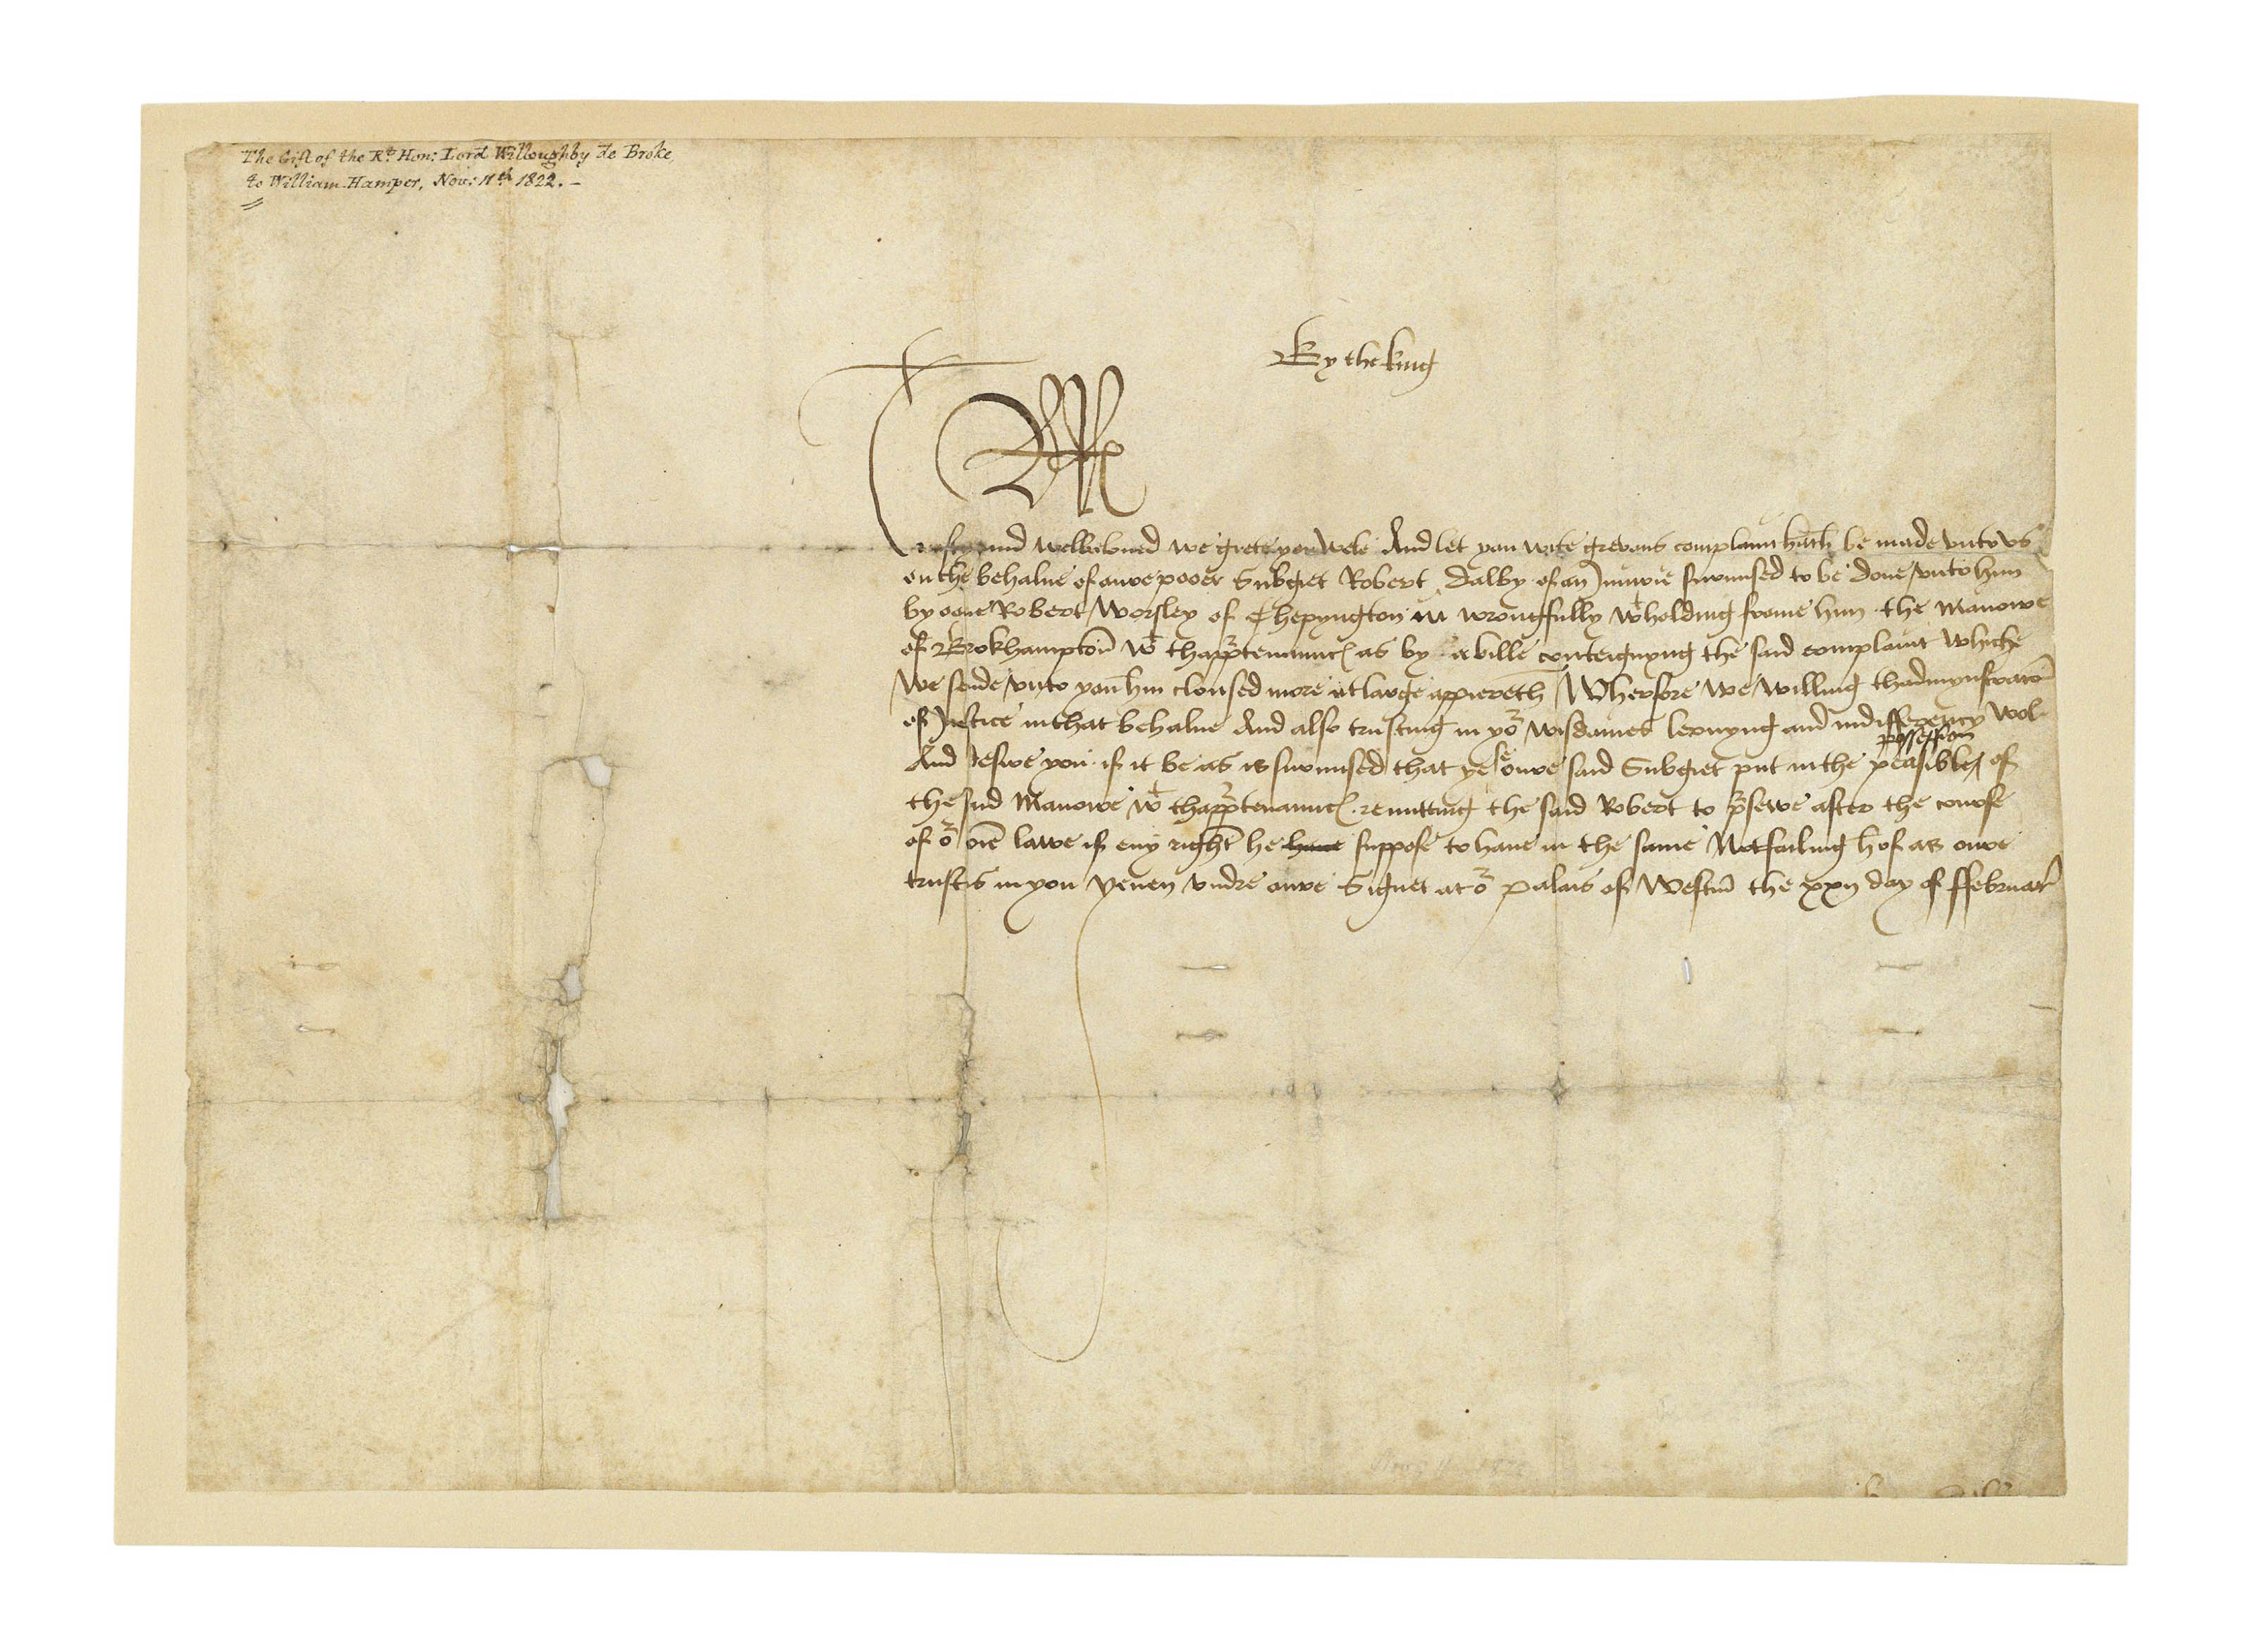 The Gift of the Rt. Hon: Lord Willoughby de Broke,
to William Hamper, Nov: 11th 1822. –
By the king
and welbeloued we grete you wele And let you wite grevous complaint hath be made vnto vs
on the behalue of oure pooer Subgiet Robert Dalby of an Iniurie surmised to be done vnto hym
by oone Robert Worsley of Chepyngton in wrongfully wtholding frome hym the Manoire
of Brokhampton wt thapprtenaunc as by a bille conteignyng the said complaint whiche
we sende vnto you hin closed more at large appiereth Wherfore we willing thadmynstracon
of Justice in that behalue And also trusting in yor wisdames lernyng and indifferency wol
And desire you if it be as is surmised that ye se oure said Subgiet put in the peasible possession of
the said Manoire wt thapprtenaunc remitting the said Robert to prsewe after the course
of or oie lawe if eny right he have suppose to haue in the same Not failing hof as oure
trust is in you Yeuen vndre oure Signet at or Palais of Westm the xxij day of ffebruar